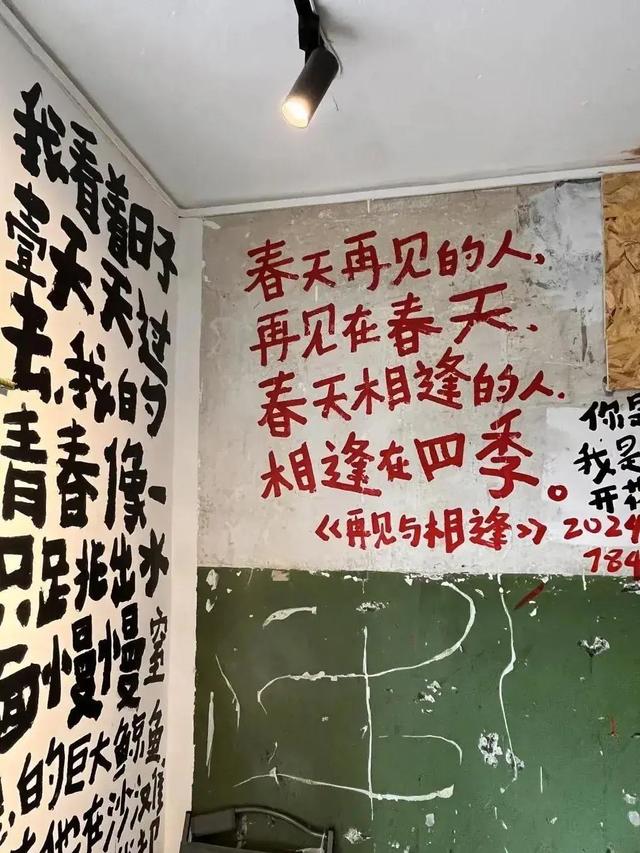 我看着日子
壹天天过
去,我的
青春像一
只跳出水
面慢慢窒
的巨大鲸鱼
在沙漠
春天再见的人,
再见在春天、
春天相逢的人.
相逢在四季。
《再见与相逢》
你是
我是
开
2024
784